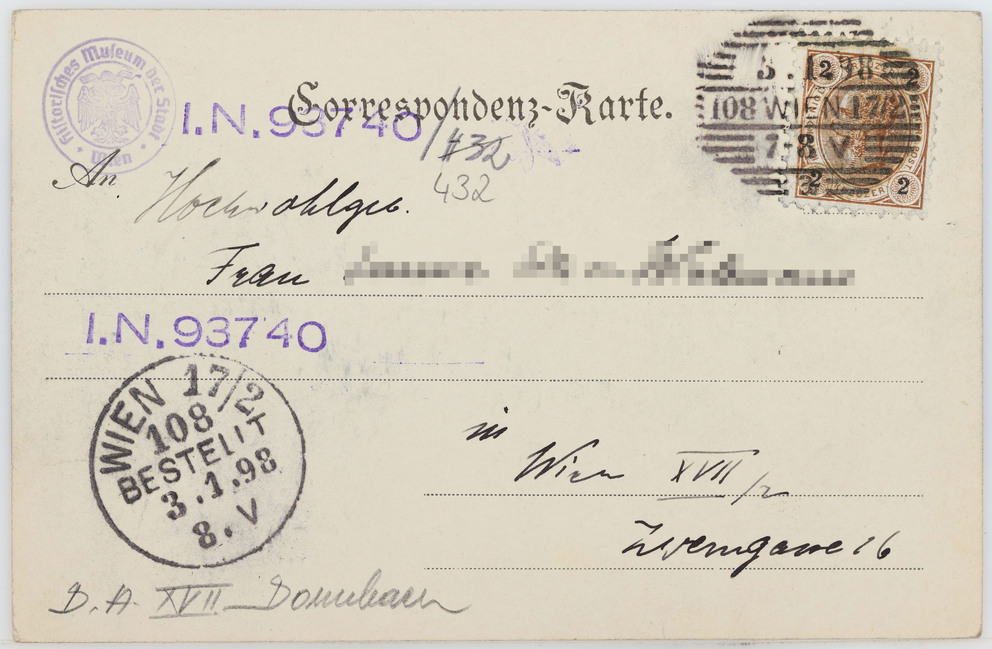 Historisches Museum der Stadt
Wien
Correspondenz-Karte.
I.N. 93740 / 432
432
3.1.98
108 WIEN 17/2
7-8 V
2 2
2 2
An
Hochwohlgeb.
Frau
I.N. 93740
WIEN 17/2
108
BESTELLT
3.1.98
8. V
in
Wien XVII/2
16
D. A. XVII Dornbach